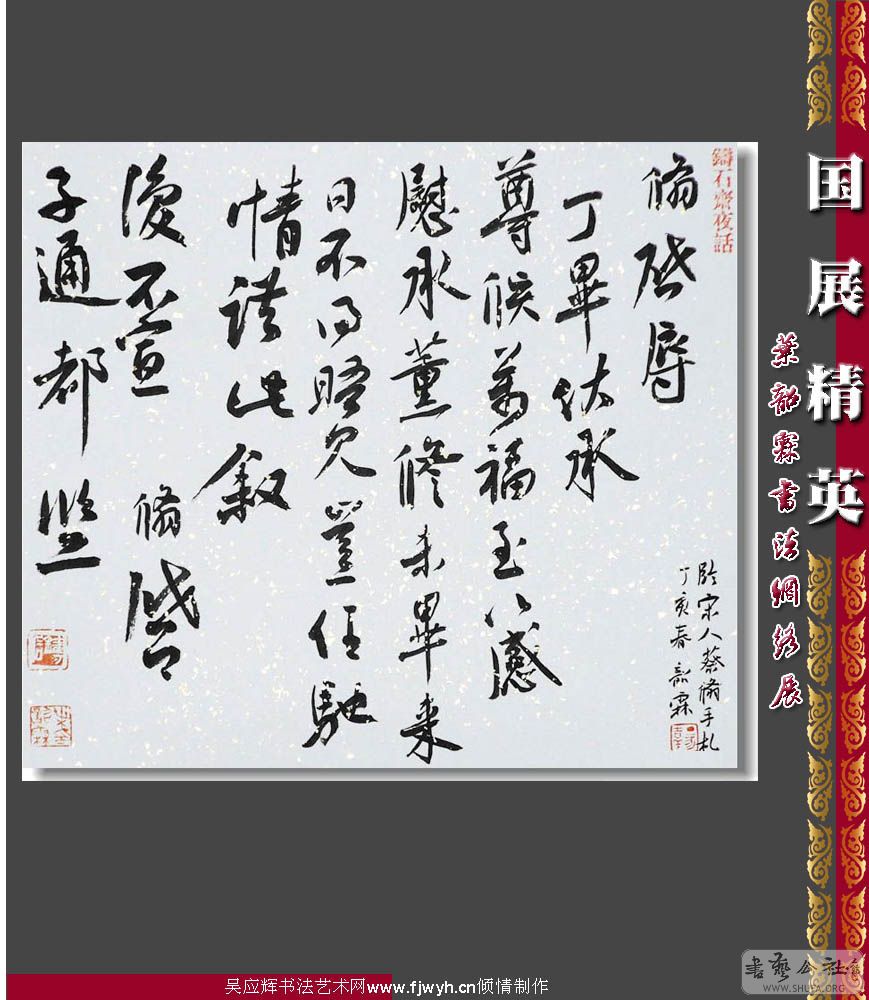 国展精英
葉韶霖書法網絡展
鑄石齋夜話
脩啟辱
丁畢伏承
尊候萬福至以感
慰承薰修未畢来
日不得晤見豈任馳
情謹此敘
復不宣 脩啓
子通都監
臨宋人蔡脩手札
丁亥春韶霖
吴应辉书法艺术网www.fjwyh.cn倾情制作
書藝公社
WWW.SHUFA.ORG